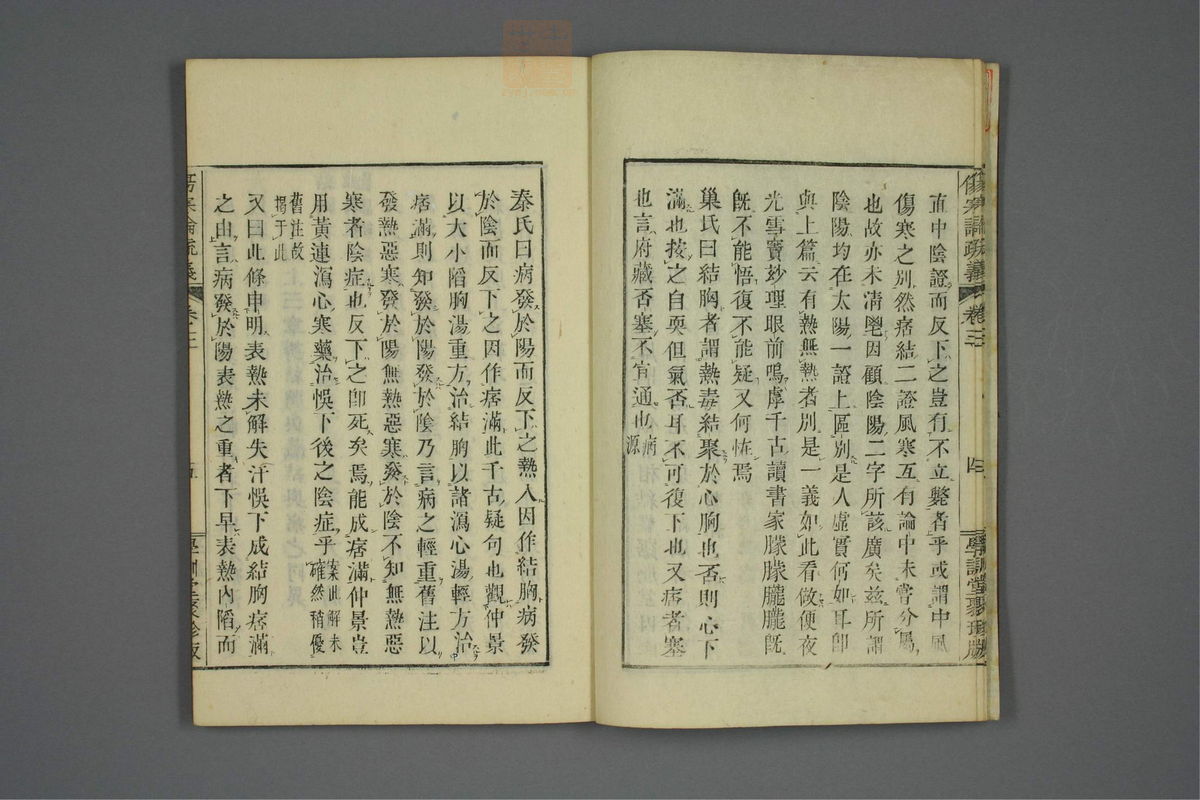 傷寒論疏義 卷三 四 學訓堂聚珍版
直中陰證而反下之豈有不立斃者乎或謂中風
傷寒之別然痞結二證風寒互有論中未嘗分屬
也故亦未清鬯因顧陰陽二字所該廣矣玆所謂
陰陽均在太陽一證上區別是人虛實何如耳卽
與上篇云有熱無熱者別是一義如此看做便夜
光雪竇妙理眼前嗚虖千古讀書家朦朦朧朧旣
旣不能悟復不能疑又何怪焉
巢氏曰結胸者謂熱毒結聚於心胸也否則心下
滿也按之自耎但氣否耳不可復下也又痞者塞
也言府藏否塞不宣通也病源
秦氏曰病發於陽而反下之熱入因作結胸病發
於陰而反下之因作痞滿此千古疑句也觀仲景
以大小陷胸湯重方治結胸以諸瀉心湯輕方治
痞滿則知發於陽發於陰乃言病之輕重舊注以
發熱惡寒發於陽無熱惡寒發於陰不知無熱惡
寒者陰症也反下之卽死矣焉能成痞滿仲景豈
用黃連瀉心寒藥治悞下後之陰症乎案此解未確然稍優
舊注故揭于此
又曰此條申明表熱未解失汗悞下成結胸痞滿
之由言病發於陽表熱之重者下早表熱內陷而
傷寒論疏義 卷三 五 學訓堂聚珍版